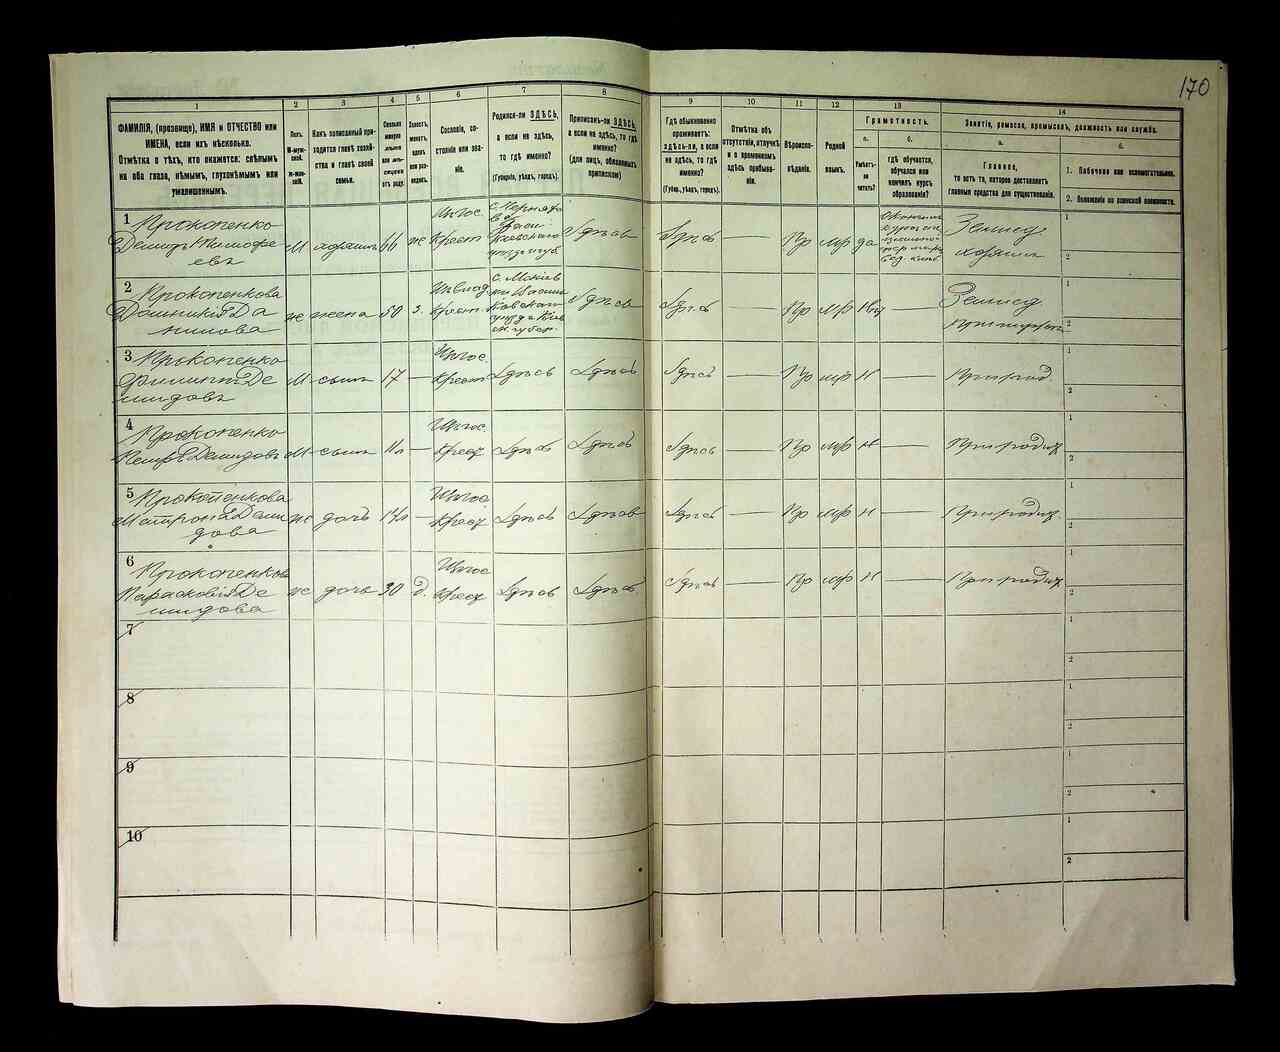 170
1
2
3
4
5
6
7
8
9
10
11
12
13
14
ФАМИЛІЯ, (прозвище), ИМЯ и ОТЧЕСТВО или
ИМЕНА, если ихъ нѣсколько.
Отмѣтка о тѣхъ, кто окажется: слѣпымъ
на оба глаза, нѣмымъ, глухонѣмымъ или
умалишеннымъ.
Полъ.
М-мужской.
Ж-женскій.
Какъ записанный при-
ходится главѣ хозяй-
ства и главѣ своей
семьи.
Сколько
минуло
лѣтъ
или мѣ-
сяцевъ
отъ роду.
Холостъ,
женатъ,
вдовъ
или раз-
веденъ.
Сословіе, со-
стояніе или зва-
ніе.
Родился-ли ЗДѢСЬ,
а если не здѣсь,
то гдѣ именно?
(Губернія, уѣздъ, городъ).
Приписанъ-ли ЗДѢСЬ,
а если не здѣсь, то гдѣ
именно?
(для лицъ, обязанныхъ
припискою)
Гдѣ обыкновенно
проживаетъ:
здѣсь-ли, а если
не здѣсь, то гдѣ
именно?
(Губерн., уѣздъ, городъ).
Отмѣтка объ
отсутствіи, отлучкѣ
и о временномъ
здѣсь пребыва-
ніи.
Вѣроиспо-
вѣданіе.
Родной
языкъ.
Грамотность.
а.
б.
Умѣетъ-
ли
читать?
гдѣ обучается,
обучался или
кончилъ курсъ
образованія?
Занятіе, ремесло, промыселъ, должность или служба.
а.
б.
Главное,
то есть то, которое доставляетъ
главныя средства для существованія.
1. Побочное или вспомогательное.
2. Положеніе по воинской повинности.
1
Прокопенко
Демидъ Тимофе
евъ
М
хозяинъ
66
ж
Крест
Здѣсь
Здѣсь
—
Пр
мр
да
Землед.
хозяинъ
1
2
2
Прокопенкова
Домникія Да
нилова
ж
жена
50
з.
Крест.
Здѣсь
Здѣсь
—
Пр
мр
Землед
1
2
3
Прокопенко
Де
мидовъ
М
сынъ
17
—
Крест
Здѣсь
Здѣсь
Здѣсь
—
Пр
мр
н
—
1
2
4
Прокопенко
Петръ Демидовъ
М
сынъ
—
Крест
Здѣсь
Здѣсь
Здѣсь
—
Пр
мр
н
—
При родит
1
2
5
Прокопенкова
Матрона Деми
дова
ж
дочь
—
Крест
Здѣсь
Здѣсь
Здѣсь
—
Пр
мр
н
—
При родит.
1
2
6
Прокопенкова
Парасковія Де
мидова
ж
дочь
д.
Крест
Здѣсь
Здѣсь
Здѣсь
—
Пр
мр
н
—
При родит
1
2
7
1
2
8
1
2
9
1
2
10
1
2